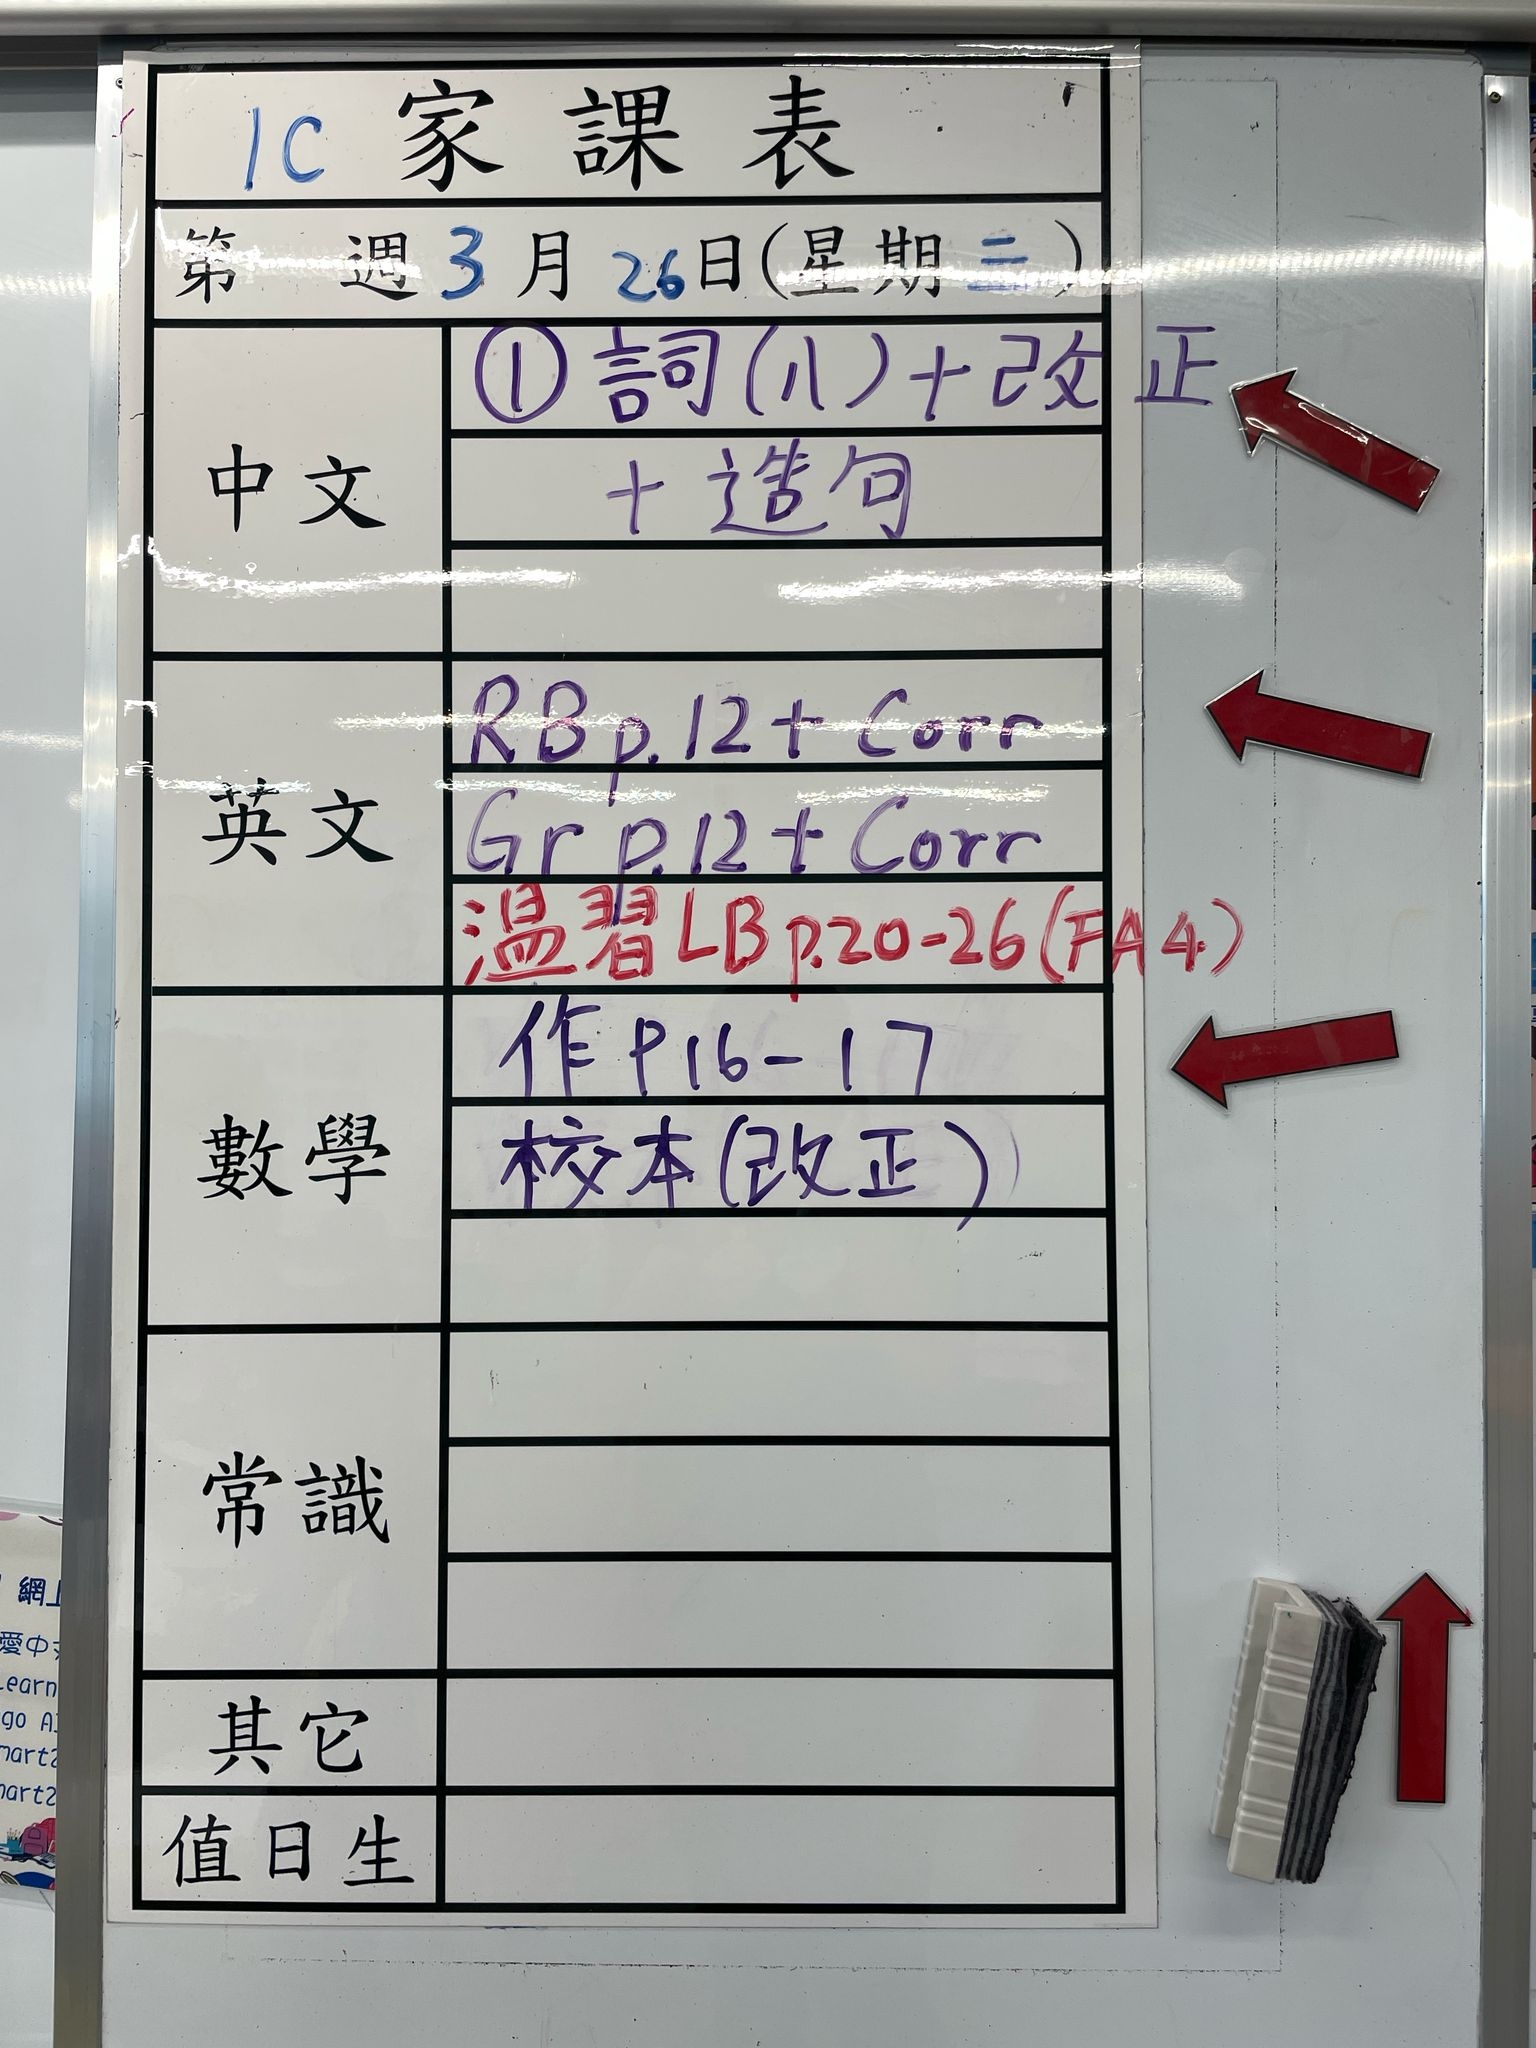 1C 家課表
第 週 3月26日(星期三)
中文
① 詞(八)+改正
+造句
英文
RB p.12 + Corr
Gr p.12 + Corr
温習 LB p.20-26 (FA4)
數學
作 P16-17
校本(改正)
常識
其它
值日生
網上
愛中文
Learn
go
mart
mart